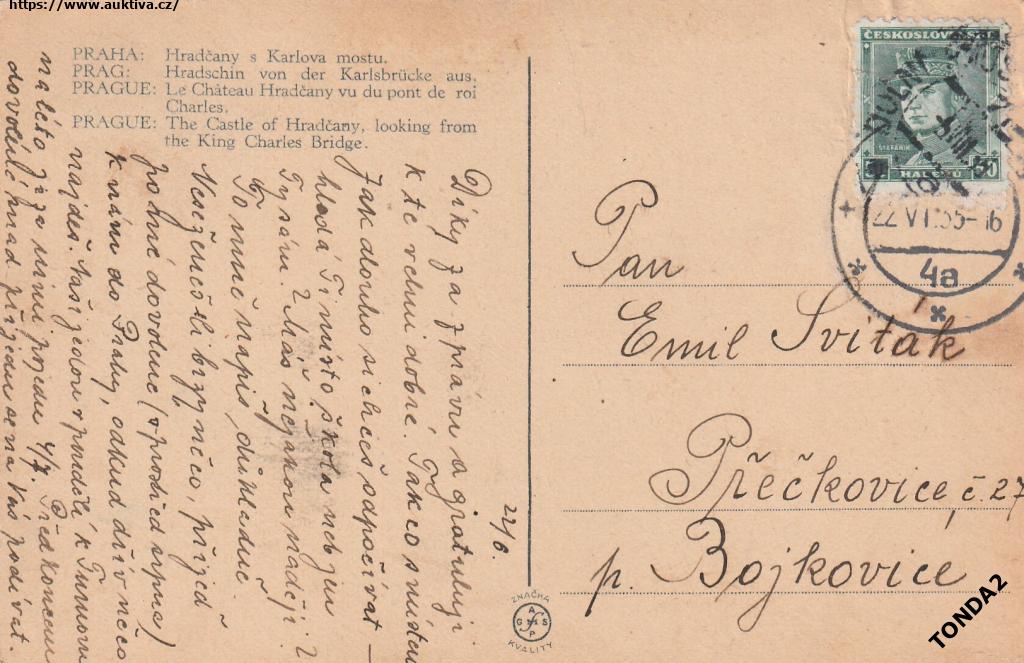 https://www.auktiva.cz/
PRAHA: Hradčany s Karlova mostu.
PRAG: Hradschin von der Karlsbrücke aus.
PRAGUE: Le Château Hradčany vu du pont de roi
Charles.
PRAGUE: The Castle of Hradčany, looking from
the King Charles Bridge.
22/6.
Díky za zprávu a gratuluji
k té velmi dobré. Tak co s místem
Jak dlouho si chceš odpočívat –
hledá Ti místo škola neb jen
Ty sám. Máš nějakou naději?
To mně napiš důkladně.
Neseženeš-li brzy něco, přijeď
po hné dovolené (v prostřed srpna)
k nám do Prahy, odkud dřív něco
najdeš. Naši jedou v pondělí k Turnovu
na léto, já za nimi pojedu 4/7. Před koncem
dovolené snad přijedu se na Vás podívat.
ČESKOSLOVENSKO
ŠTEFÁNIK
50 HALÉŘŮ
22 VI 35-16
4a
Pan
Emil Sviták
Přečkovice č. 27
p. Bojkovice
ZNAČKA
KVALITY
TONDA2